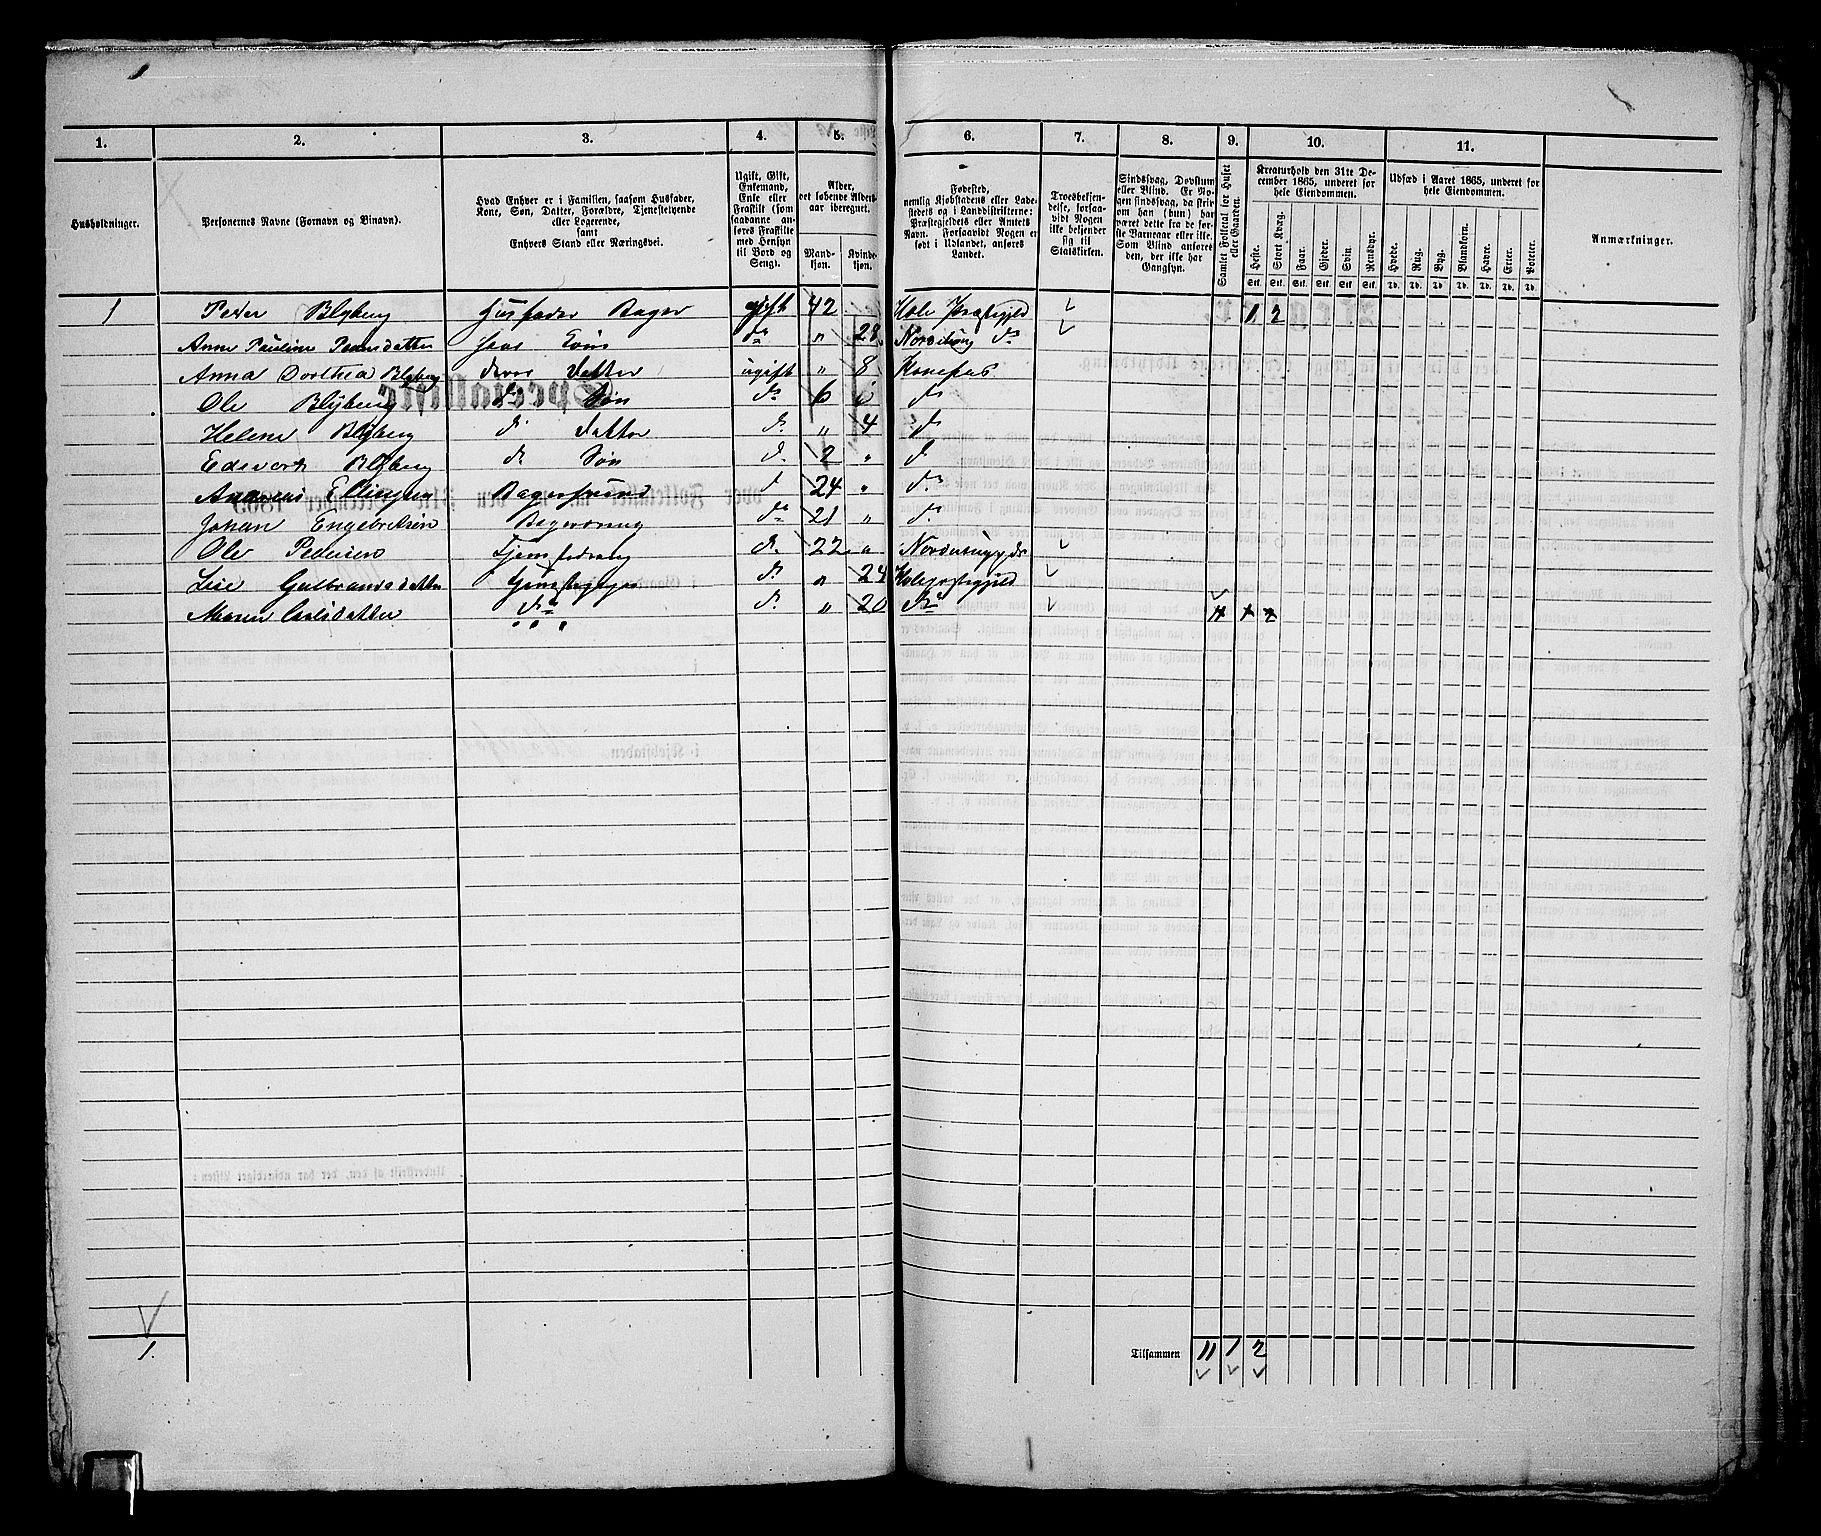 1. 2. 3. 4. 5. 6. 7. 8. 9. 10. 11.
Husholdninger.
Personernes Navne (Fornavn og Binavn).
Hvad Enhver er i Familien, saasom Husfader,
Kone, Søn, Datter, Forældre, Tjenestetyende
eller Logerende,
samt
Enhvers Stand eller Næringsvei.
Ugift, Gift,
Enkemand,
Enke eller
Fraskilt (som
saadanne an-
føres Fraskilte
med Hensyn
til Bord og
Seng).
Alder,
det løbende Alders-
aar iberegnet.
Mand-
kjøn.
Kvinde-
kjøn.
Fødested,
nemlig Kjøbstadens eller Lade-
stedets og i Landdistrikterne:
Præstegjeldets eller Amtets
Navn. Forsaavidt Nogen er
født i Udlandet, anføres
Landet.
Troesbekjen-
delse, forsaa-
vidt Nogen
ikke bekjender
sig til
Statskirken.
Sindssvag, Døvstum
eller Blind. Er No-
gen sindssvag, da skriv
om han (hun) har
været dette fra de før-
ste Barneaar eller ikke.
Som Blind anføres
den, der ikke har
Gangsyn.
Samlet Folketal for Huset
eller Gaarden.
Kreaturhold den 31te De-
cember 1865, underet for
hele Eiendommen.
Heste. Stort Kvæg. Faar. Gjeder. Svin. Rensdyr.
Stk. Stk. Stk. Stk. Stk. Stk.
Udsæd i Aaret 1865, underet for
hele Eiendommen.
Hvede. Rug. Byg. Blandkorn. Havre. Erter. Poteter.
Td. Td. Td. Td. Td. Td. Td.
Anmærkninger.
1 Peder Blyberg Husfader Bager gift 42 Hole Præstegjeld 1 2
Anne Pauline hans Kone do " 28 do
Anna Dorthea Blyberg deres Datter ugift " 8 Hønefos
Ole Blyberg do Søn do 6 do
Helene Blyberg d. Datter d. " 4 do
Edevart Blyberg d. Søn d. 2 " d
Ellingsen Bagersvend d 24 " d.
Johan Engebretsen do 21 " d.
Ole Pedersen d. 22 "
Lise Gulbrandsdatter d. " 24
Maren Carlsdatter do d. " 20 do 11 1 2
1.
Tilsammen 11 1 2